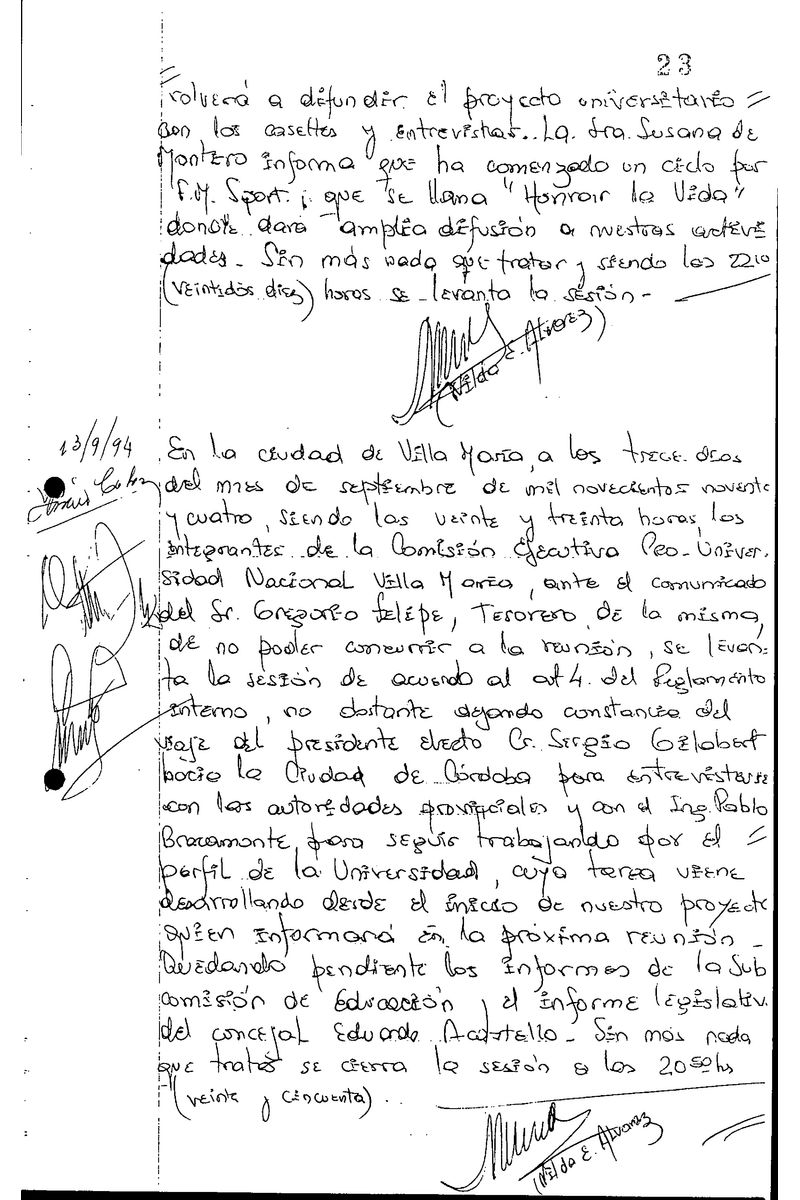 23
volverá a difundir el proyecto universitario =
con los casettes y entrevistas.. La Sra. Susana de
Montero informa que ha comenzado un ciclo por
F.M. Sport; que se llama "Honrar la Vida"
donde dará amplia difusión a nuestras activi
dades.- Sin más nada que tratar y siendo las 22 10
(veintidos diez) horas se levanta la sesión -
(Nilda E. Alvarez)
13/9/94
En la ciudad de Villa María, a los trece días
del mes de septiembre de mil novecientos noventa
y cuatro, siendo las veinte y treinta horas, los
integrantes de la Comisión Ejecutiva Pro-Univer-
sidad Nacional Villa María, ante el comunicado
del Sr. Gregorio Felipe, Tesorero, de la misma,
de no poder concurrir a la reunión, se levan-
ta la sesión de acuerdo al art 4. del Reglamento
interno, no obstante dejando constancia del
viaje del presidente electo Cr. Sergio Gilabert
hacia la Ciudad de Córdoba para entrevistarse
con las autoridades provinciales y con el Ing. Pablo
Bracamonte, para seguir trabajando por el =
perfil de la Universidad, cuya tarea viene
desarrollando desde el inicio de nuestro proyecto
quien informará en la próxima reunión -
Quedando pendiente los informes de la Sub
comisión de Educación y el informe legislativ.
del concejal Eduardo Acastello - Sin más nada
que tratar se cierra la sesión a las 20 50 hs
(veinte y cincuenta) . .
(Nilda E. Alvarez)